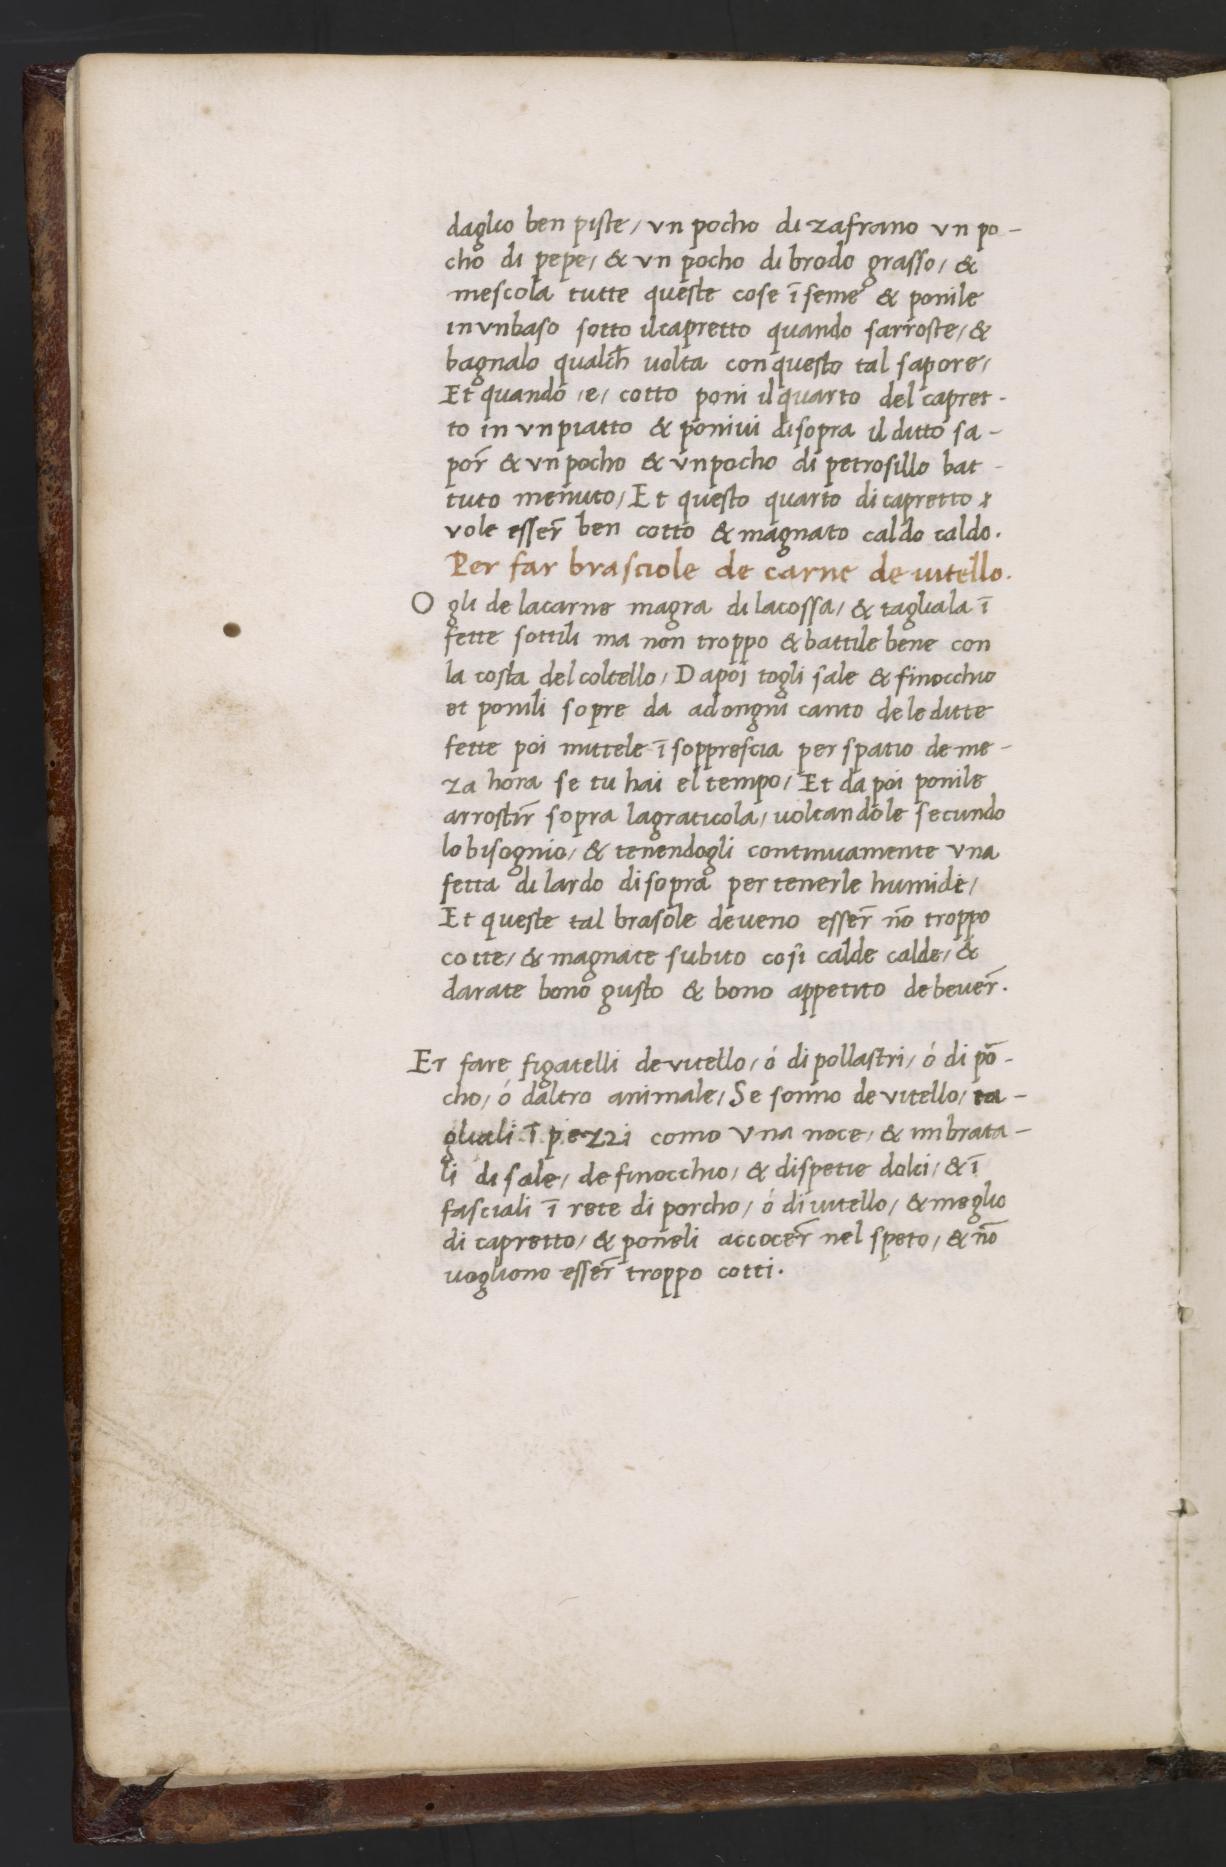 daglio ben piste / vn pocho di zafrano vn po -
cho di pepe / & vn pocho di brodo grasso / &
mescola tutte queste cose ī seme & ponile
in vnbaso sotto ilcapretto quando sarroste / &
bagnalo qualch̄ uolta con questo tal sapore /
Et quando / e / cotto poni il quarto del capret -
to in vn piatto & poniui disopra il ditto sa -
por̄ & vn pocho & vn pocho di petrosillo bat -
tuto menuto / Et questo quarto di capretto
vole esser̄ ben cotto & magnato caldo caldo .
Per far brasciole de carne de uitello .
O gli de lacarne magra di lacossa / & tagliala ī
fette sottili ma non troppo & battile bene con
la costa del coltello / Dapoi togli sale & finocchio
et ponili sopre da adongni canto dele ditte
fette poi mittele ī sopprescia per spatio de me -
za hora se tu hai el tempo / Et da poi ponile
arrostir̄ sopra lagraticola / uoltandole secundo
lo bisognio / & tenendogli continuamente vna
fetta di lardo disopra per tenerle humide /
Et queste tal brasole deueno esser̄ nō troppo
cotte / & magnate subito cosi calde calde / &
darate bono gusto & bono appetito debeuer̄ .
Er fare figatelli de vitello / ó di pollastri / ó di pō -
cho / ó daltro animale / Se sonno de vitello / ta -
gliali ī pezzi como vna noce / & imbrata -
li di sale / de finocchio / & dispetie dolci / & ī
fasciali ī rete di porcho / ó di uitello / & meglio
di capretto / & poneli accocer̄ nel speto / & nō
uogliono esser̄ troppo cotti .